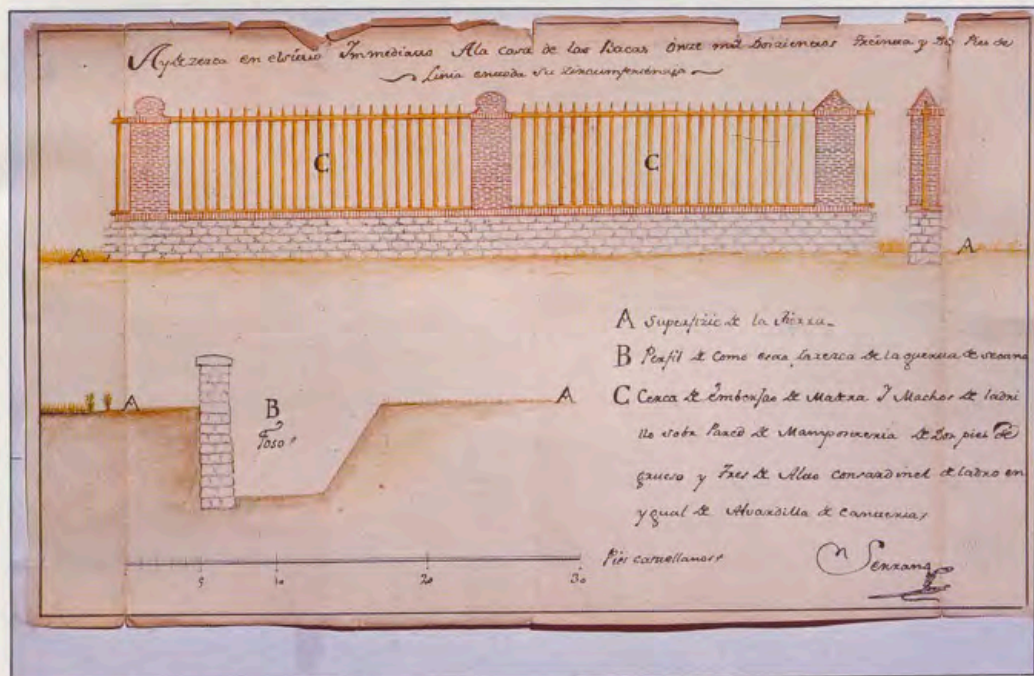 Ay de zerca en el sitio Immediato A la casa de las Bacas Onze mil Doizientos treinta y dos Pies de
Linia en toda su Zircumferenzia
C
C
A
A
A Superfizie de la Tierra
B Perfil de como esta la zerca de la guerta de secano
C Cerca de Emberjao de Madera Y Machos de ladri
llo sobre Pared de Mamposteria de Dos pies de
grueso y Tres de Alto con sardinel de ladro en
ygual de Alvardilla de canteria
A
B
foso
A
5
10
20
30
Pies castellanos
Serrano